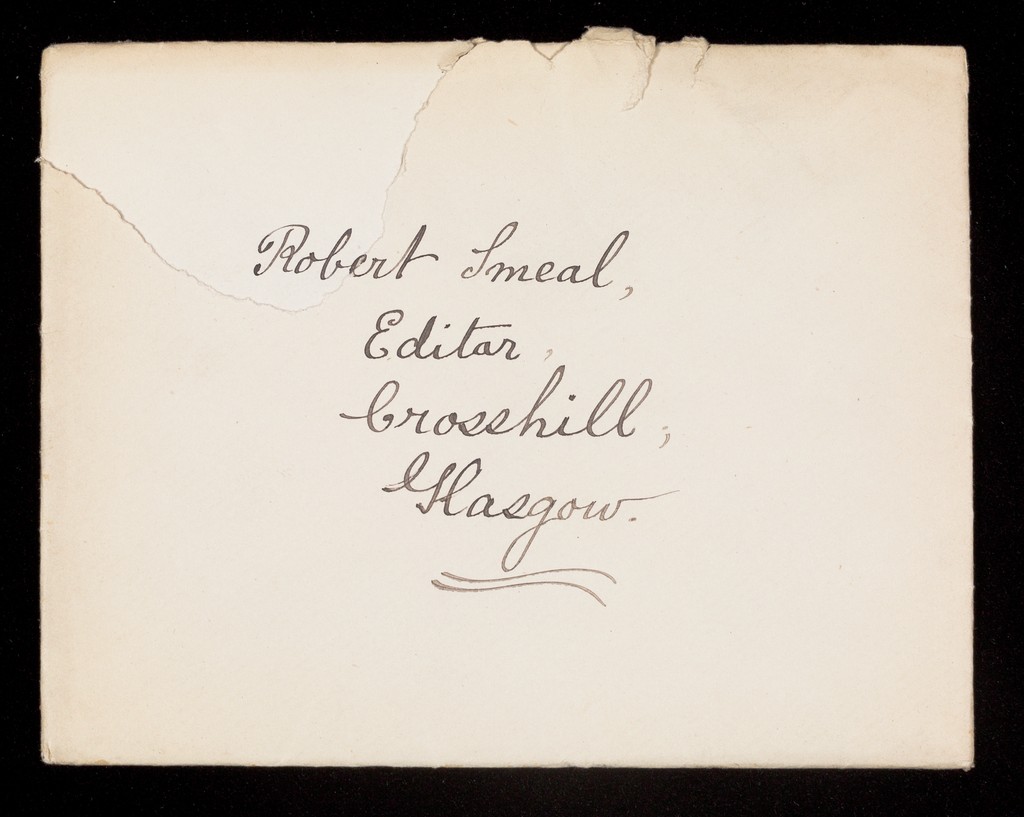 Robert Smeal,
Editor,
Crosshill,
Glasgow.